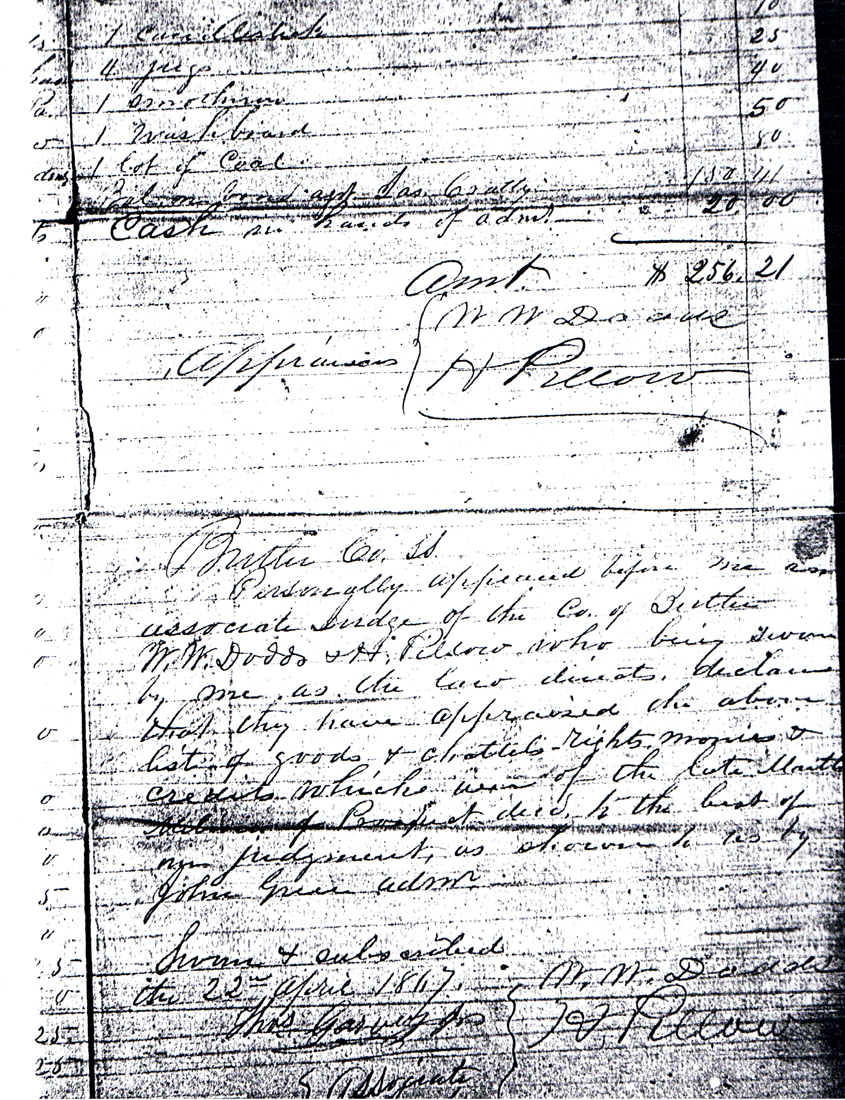 10
1 candlestick 25
4 jugs 40
1 Smoothing 50
1 Washboard 80
1 lot of Coal
Bal on bond agt Jas. 150 41
Cash in hands of admr. 20 00
Amt. $ 256.21
W W Dodds
Appraisers
H Pillow
Butler Co. SS
Personally appeared before me an
associate Judge of the Co. of Butler
W. W. Dodds & H. Pillow who being sworn
by me as the law directs, declare
that they have appraised the above
list of goods & chattels-rights monies &
credits which were of the late Martha
of Prospect decd. to the best of
judgment, as shown to us by
John Greer admr.
Sworn & subscribed
the 22nd April 1867.
W. W. Dodds
Thos Garvey
H. Pillow
Associate